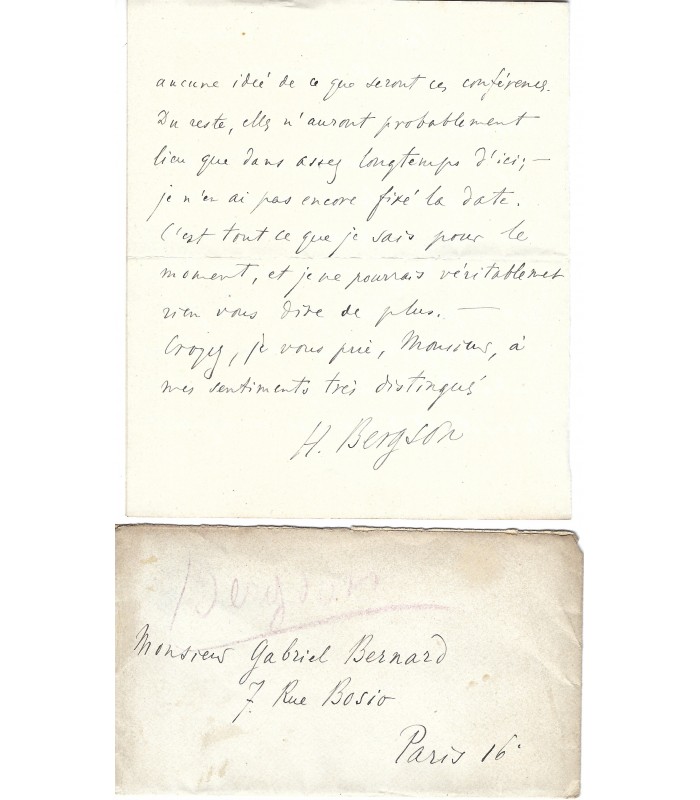 aucune idée de ce que seront ces conférences.
Du reste, elles n'auront probablement
lieu que dans assez longtemps d'ici; —
je n'en ai pas encore fixé la date.
C'est tout ce que je sais pour le
moment, et je ne pourrais véritablement
rien vous dire de plus. —
Croyez, je vous prie, Monsieur, à
mes sentiments très distingués
H. Bergson
Bergson
Monsieur Gabriel Bernard
7. Rue Bosio
Paris 16e